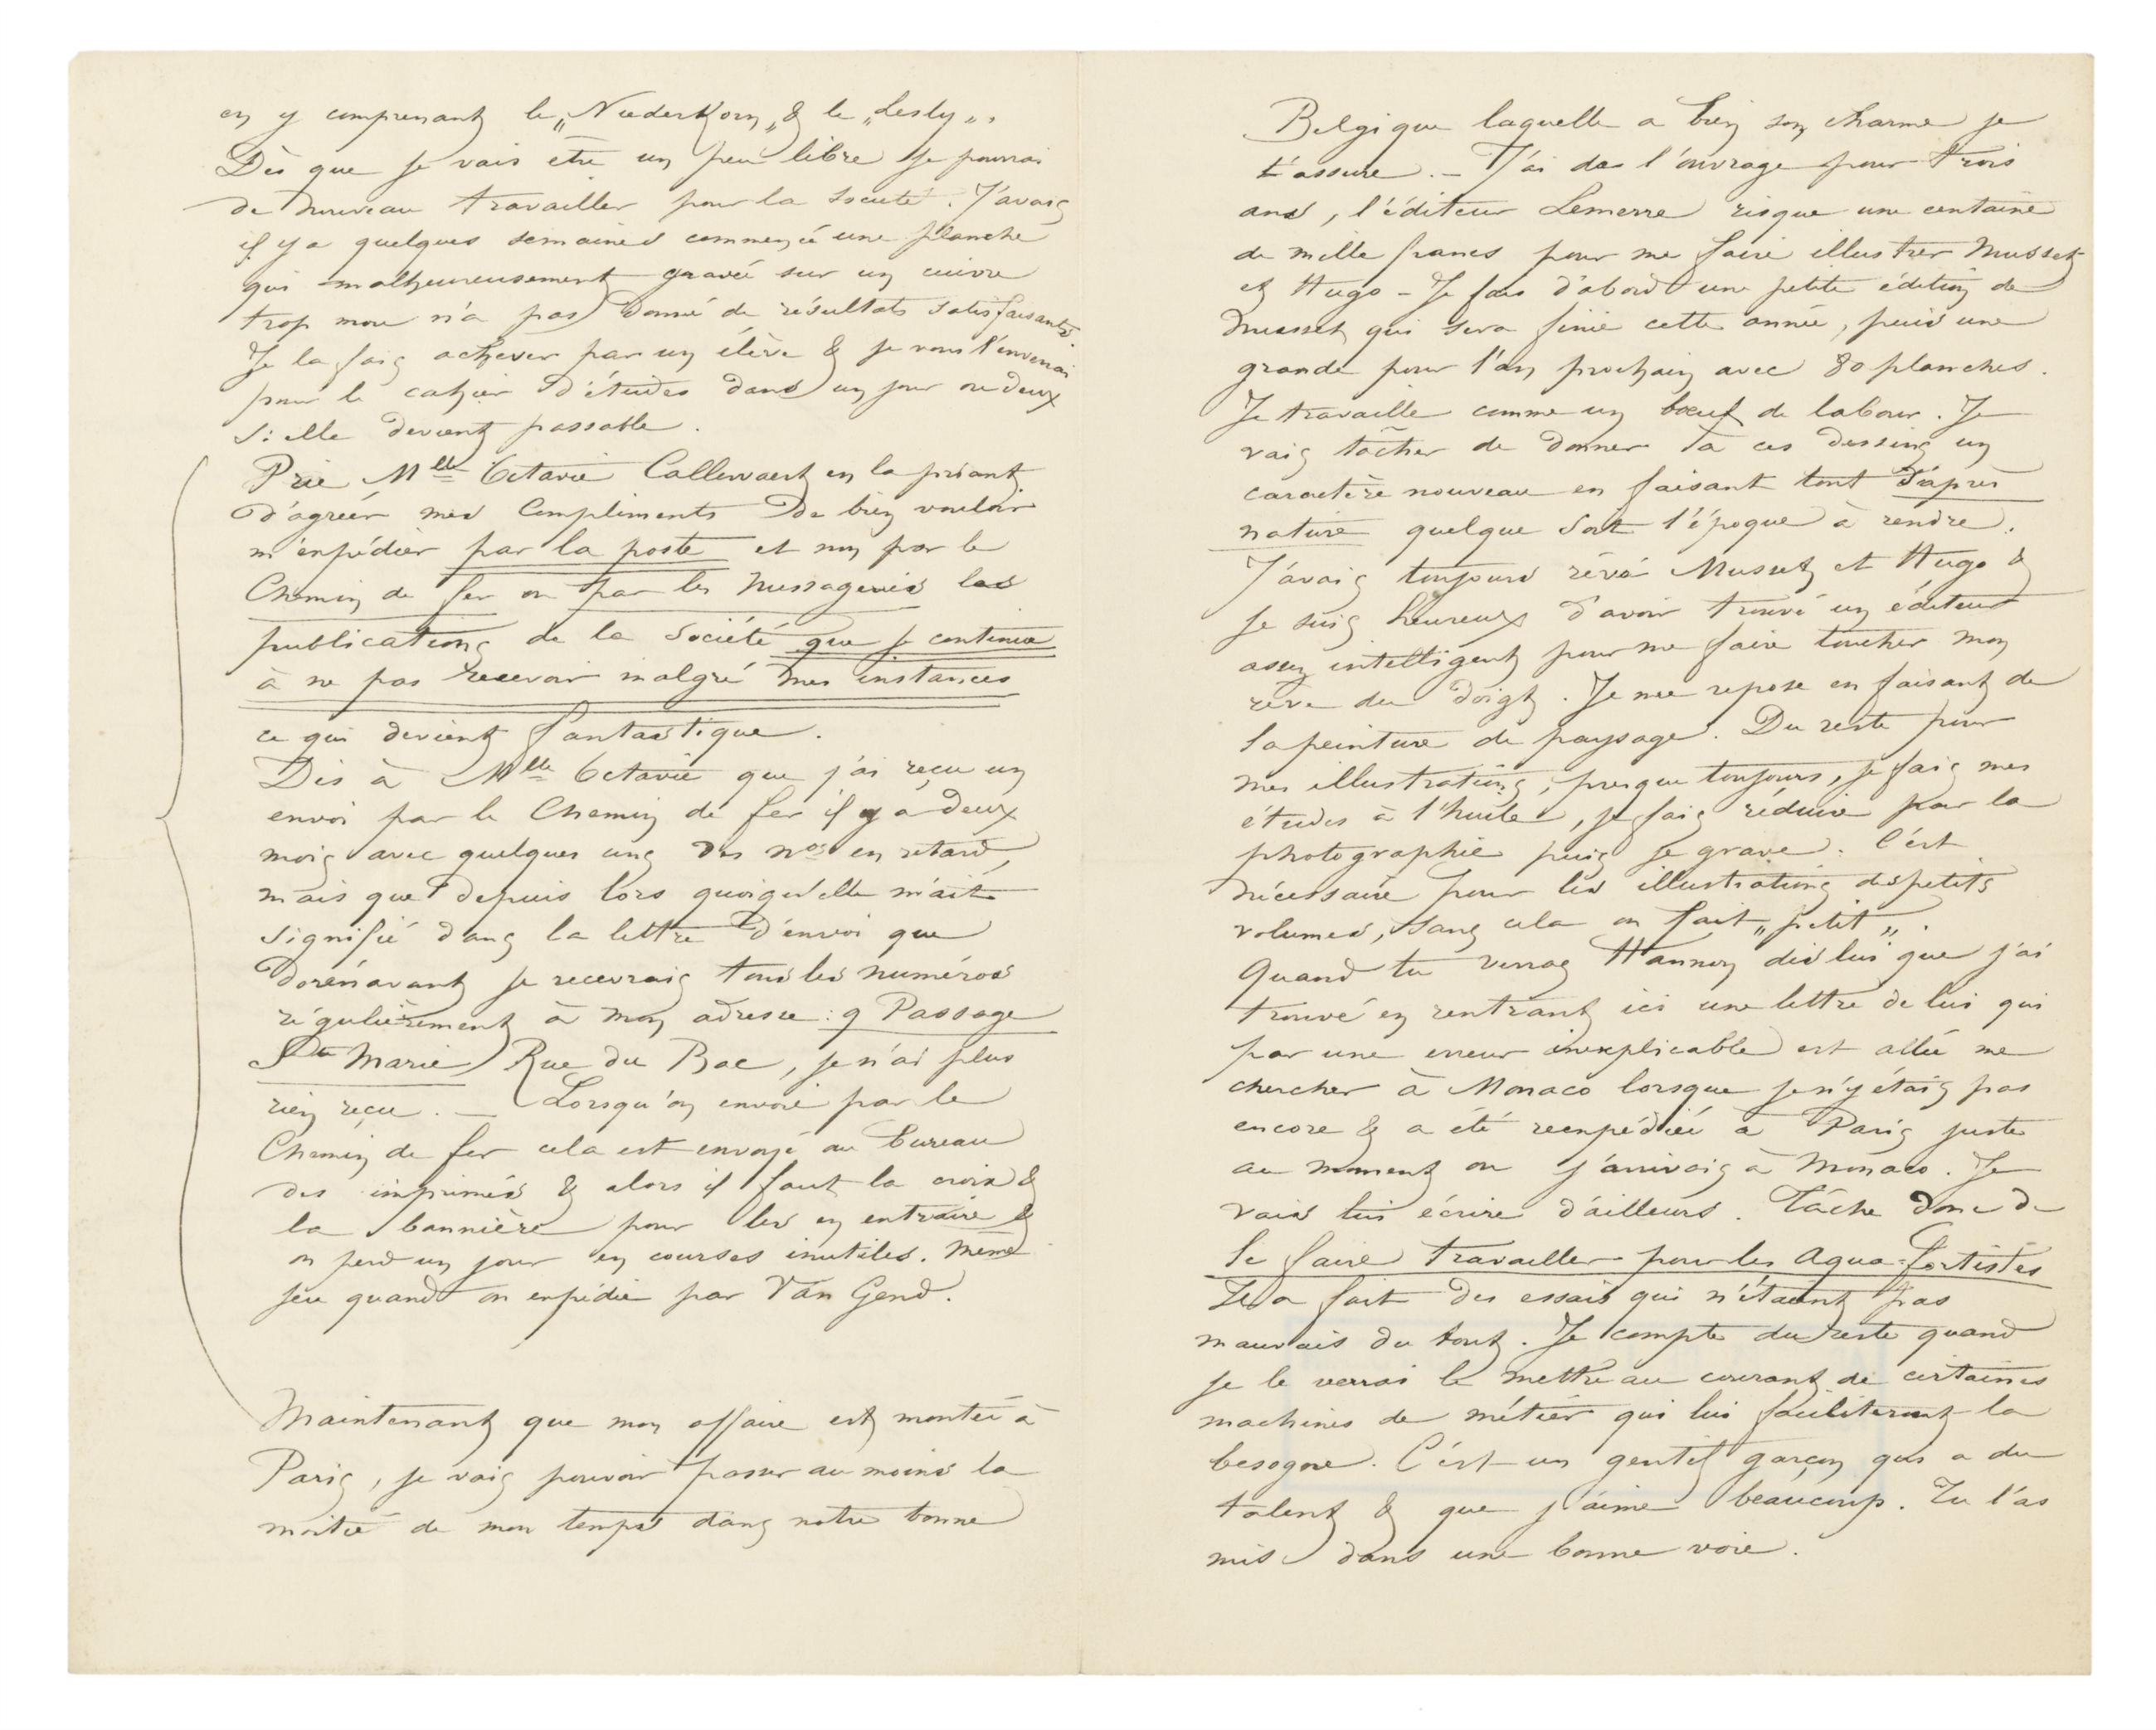 en y comprenant le „Niederkorn„ & le „Lesly„.
Dès que je vais être un peu libre je pourrai
de nouveau travailler pour la Société. J'avais
il y a quelques semaines commencé une planche
qui malheureusement gravée sur un cuivre
trop mou n'a pas donné de résultats satisfaisants.
Je la fais achever par un élève & je vous l'enverrai
pour le cahier d'études dans un jour ou deux
si elle devient passable.
Prie Mlle Octavie Callewaert en la priant
d'agréer mes compliments de bien vouloir
m'expédier par la poste et non par le
Chemin de fer ou par les Messageries les
publications de la Société que je continue
à ne pas recevoir malgré mes instances
ce qui devient fantastique.
Dis à Mlle Octavie que j'ai reçu un
envoi par le Chemin de fer il y a deux
mois avec quelques uns des nos en retard,
mais que depuis lors quoiqu'elle m'ait
signifié dans la lettre d'envoi que
dorénavant je recevrais tous les numéros
régulièrement à mon adresse : 9 Passage
Ste Marie Rue du Bac, je n'ai plus
rien reçu. — Lorsqu'on envoie par le
Chemin de fer cela est envoyé au bureau
des imprimés & alors il faut la croix &
la bannière pour les en extraire &
on perd un jour en courses inutiles. Même
jeu quand on expédie par Van Gend.
Maintenant que mon affaire est montée à
Paris, je vais pouvoir passer au moins la
moitié de mon temps dans notre bonne
Belgique laquelle a bien son charme je
t'assure. — J'ai de l'ouvrage pour trois
ans, l'éditeur Lemerre risque une centaine
de mille francs pour me faire illustrer Musset
et Hugo — Je fais d'abord une petite édition de
Musset qui sera finie cette année, puis une
grande pour l'an prochain avec 80 planches.
Je travaille comme un bœuf de labour. Je
vais tâcher de donner à ces dessins un
caractère nouveau en faisant tout d'après
nature quelque soit l'époque à rendre.
J'avais toujours rêvé Musset et Hugo &
je suis heureux d'avoir trouvé un éditeur
assez intelligent pour me faire toucher mon
rêve du doigt. Je me repose en faisant de
la peinture de paysage. Du reste pour
mes illustrations, presque toujours, je fais mes
études à l'huile, je fais réduire par la
photographie puis je grave. C'est
nécessaire pour les illustrations des petits
volumes, sans cela on fait „petit„.
Quand tu verras Hannon dis lui que j'ai
trouvé en rentrant ici une lettre de lui qui
par une erreur inexplicable est allée me
chercher à Monaco lorsque je n'y étais pas
encore & a été réexpédiée à Paris juste
au moment où j'arrivais à Monaco. Je
vais lui écrire d'ailleurs. Tâche donc de
le faire travailler pour les Aqua-fortistes
Il a fait des essais qui n'étaient pas
mauvais du tout. Je compte du reste quand
je le verrai le mettre au courant de certaines
machines de métier qui lui faciliteront la
besogne. C'est un gentil garçon qui a du
talent & que j'aime beaucoup. Tu l'as
mis dans une bonne voie.